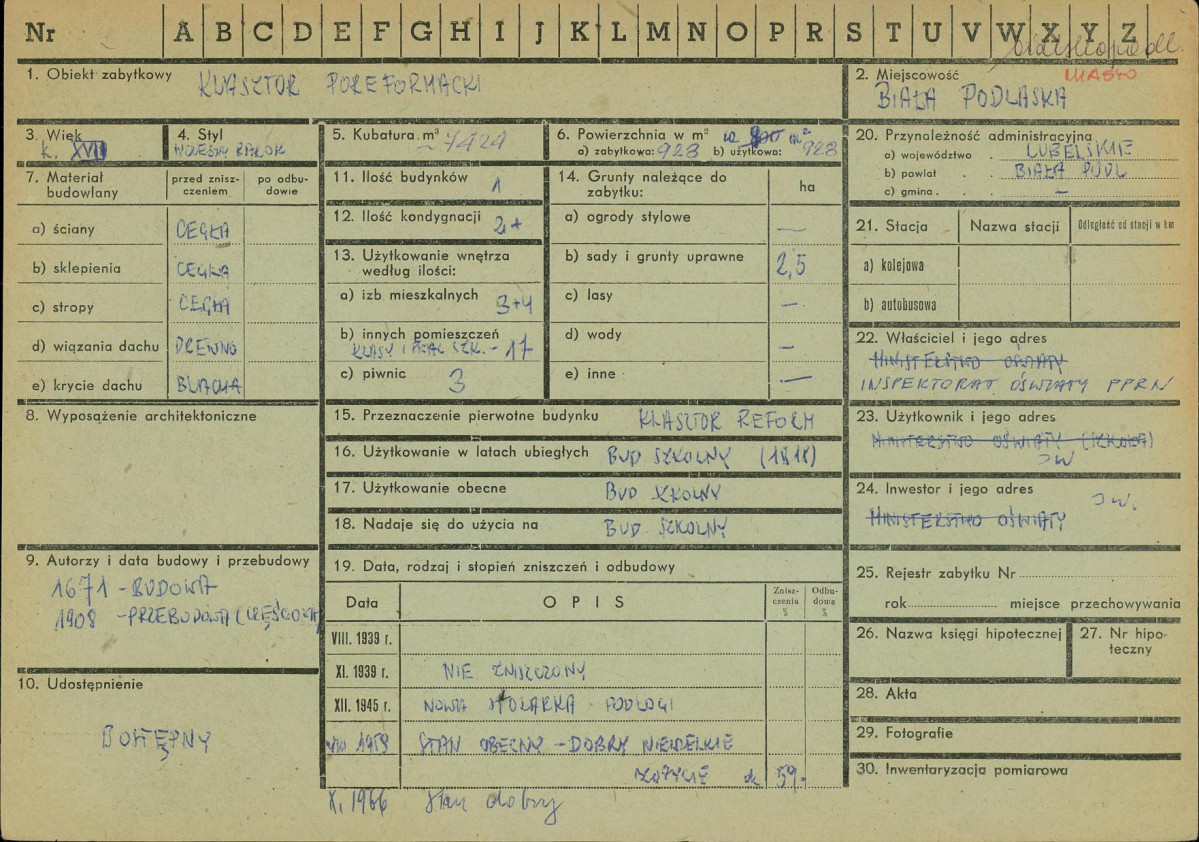 Nr A B C D E F G H I J K L M N O P R S T U V W X Y Z
1. Obiekt zabytkowy KLASZTOR POREFORMACKI
2. Miejscowość MIASTO
BIAŁA PODLASKA
3. Wiek
k. XVII
4. Styl
WCZESNY BAROK
5. Kubatura m³
~7424
6. Powierzchnia w m²
a) zabytkowa: 928 b) użytkowa: 928
20. Przynależność administracyjna
a) województwo . LUBELSKIE
b) powiat . . BIAŁA PODL
c) gmina . . . —
7. Materiał budowlany
przed znisz-
czeniem
po odbu-
dowie
a) ściany CEGŁA
b) sklepienia CEGŁA
c) stropy CEGŁA
d) wiązania dachu DREWNO
e) krycie dachu BLACHA
11. Ilość budynków 1
12. Ilość kondygnacji 2+
13. Użytkowanie wnętrza
według ilości:
a) izb mieszkalnych 3+4
b) innych pomieszczeń
KLASY I SZK. - 17
c) piwnic 3
14. Grunty należące do
zabytku:
ha
a) ogrody stylowe —
b) sady i grunty uprawne 2,5
c) lasy —
d) wody —
e) inne —
21. Stacja Nazwa stacji Odległość od stacji w km
a) kolejowa
b) autobusowa
22. Właściciel i jego adres
MINISTERSTWO OŚWIATY
INSPEKTORAT OŚWIATY PPRN
8. Wyposażenie architektoniczne
15. Przeznaczenie pierwotne budynku KLASZTOR REFORM
16. Użytkowanie w latach ubiegłych BUD SZKOLNY (1818)
17. Użytkowanie obecne BUD SZKOLNY
18. Nadaje się do użycia na BUD. SZKOLNY
23. Użytkownik i jego adres
MINISTERSTWO OŚWIATY (SZKOŁA)
JW
24. Inwestor i jego adres
JW.
MINISTERSTWO OŚWIATY
9. Autorzy i data budowy i przebudowy
1671 - BUDOWA
1908 - PRZEBUDOWA (CZĘŚCIOWA)
10. Udostępnienie
DOSTĘPNY
19. Data, rodzaj i stopień zniszczeń i odbudowy
Data OPIS Znisz-
czenia
%
Odbu-
dowa
%
VIII. 1939 r.
XI. 1939 r. NIE ZNISZCZONY
XII. 1945 r. NOWA STOLARKA PODŁOGI
VIII 1959 STAN OBECNY - DOBRY NIEWIELKIE
ZUŻYCIE ok 5%
X. 1966 stan dobry
25. Rejestr zabytku Nr
rok miejsce przechowywania
26. Nazwa księgi hipotecznej
27. Nr hipo-
teczny
28. Akta
29. Fotografie
30. Inwentaryzacja pomiarowa